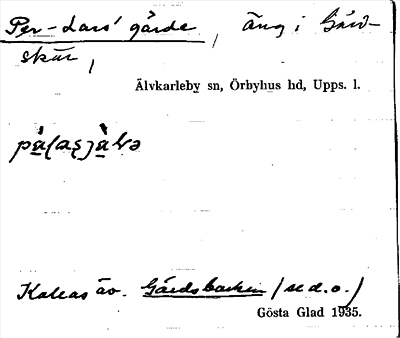 Per-Lars' gärde, äng i Gård-
skär,
Älvkarleby sn, Örbyhus hd, Upps. l.
Kallas äv. Gärdsbacken (se d. o.)
Gösta Glad 1935.